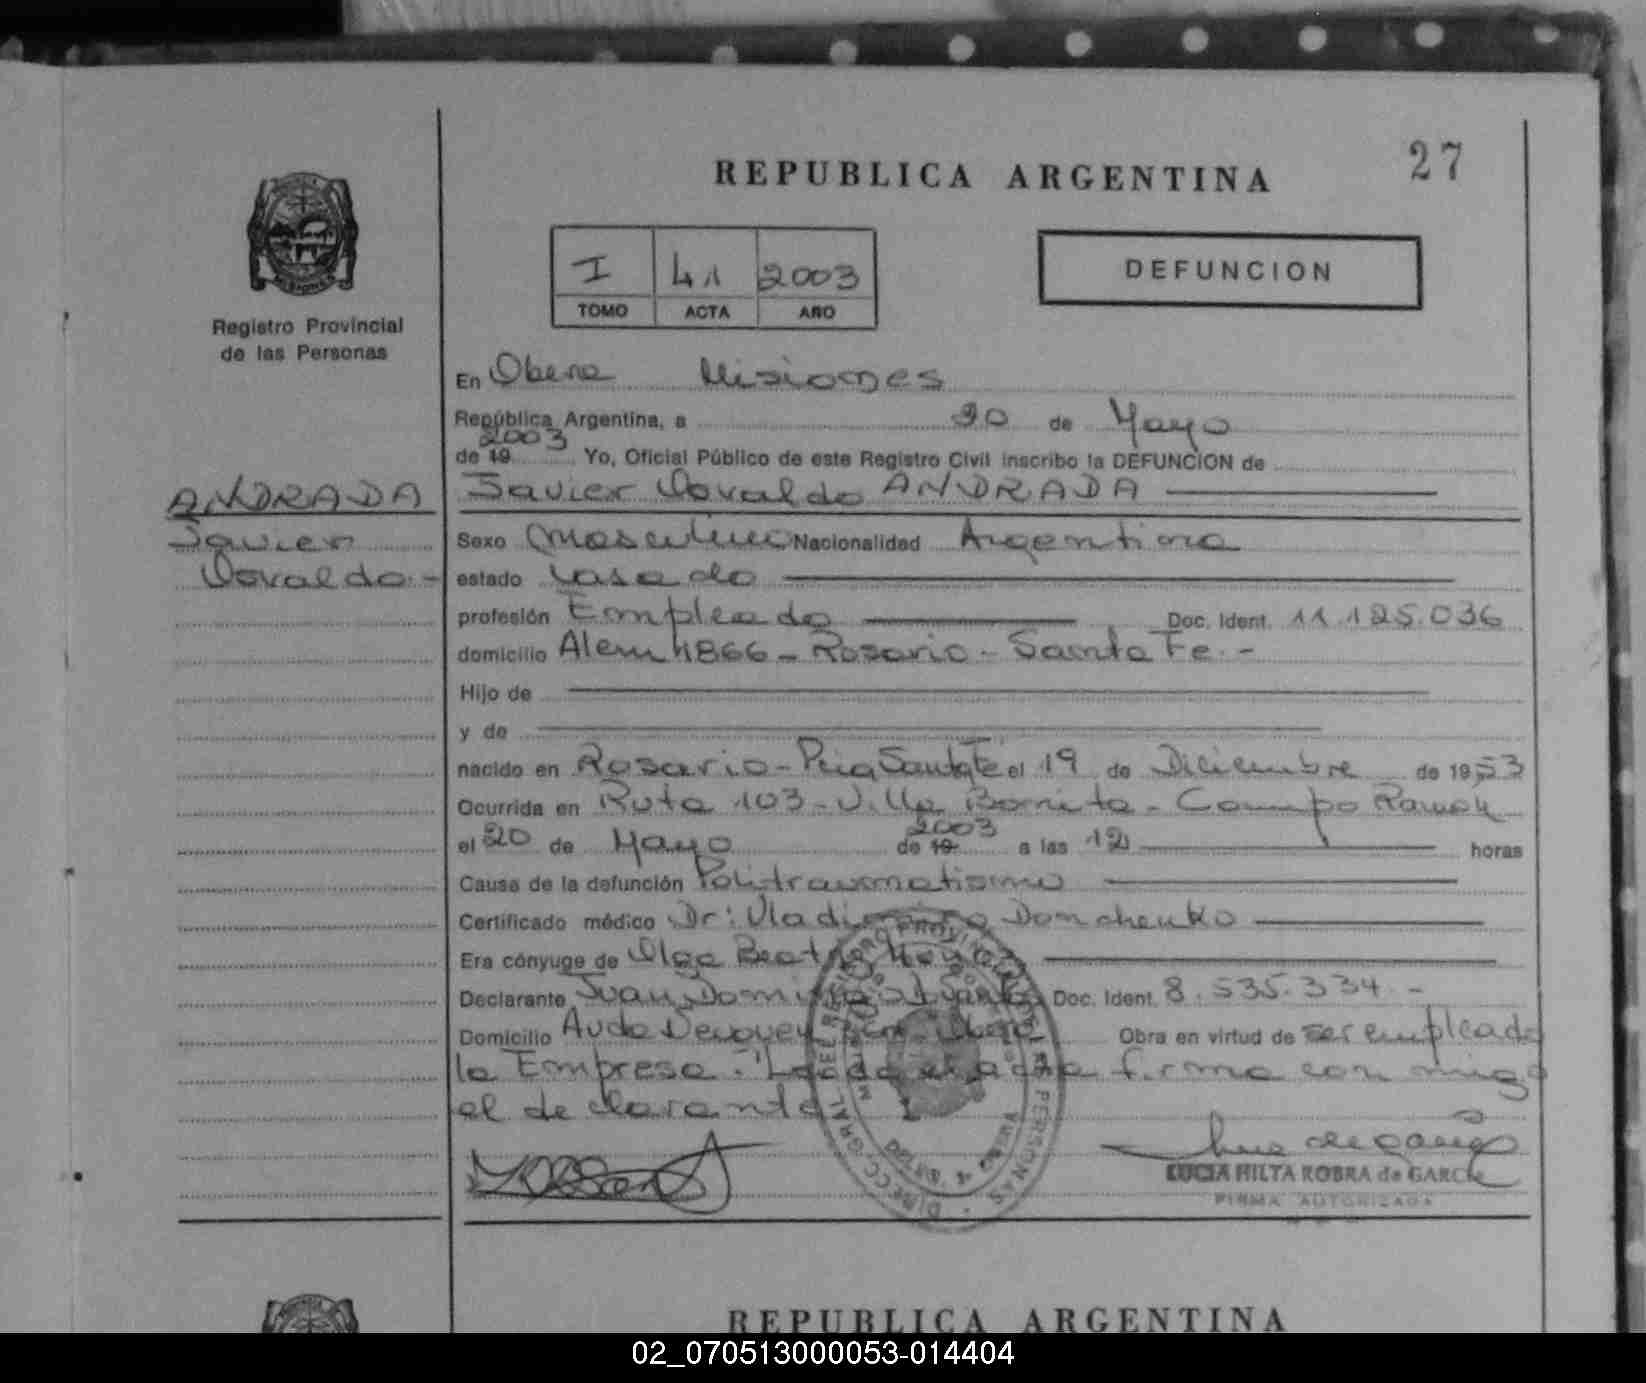 27
REPUBLICA ARGENTINA
I 41 2003
TOMO ACTA AÑO
DEFUNCION
Registro Provincial
de las Personas
En Obera Misiones
República Argentina, a 20 de Mayo
2003
de 19 Yo, Oficial Público de este Registro Civil inscribo la DEFUNCION de
ANDRADA
Javier
Osvaldo.-
Javier Osvaldo ANDRADA
Sexo Masculino Nacionalidad Argentina
estado casado
profesión Empleado Doc. Ident. 11.125.036
domicilio Alem 1866 - Rosario - Santa Fe.-
Hijo de
y de
nacido en Rosario - Pcia Santa Fe el 19 de Diciembre de 1953
Ocurrida en Ruta 103 - Villa Bonita - Campo Ramon
2003
el 20 de Mayo de 19 a las 12 horas
Causa de la defunción Politraumatismo
Certificado médico Dr: Vladimiro Domchenko
Era cónyuge de Olga Beatriz
Declarante Juan Domingo Doc. Ident. 8.535.334.-
Domicilio Avda Obera Obra en virtud de ser empleado
la Empresa.- Leida el acta firma con migo
el declarante
LUCIA HILTA ROBRA de GARCIA
FIRMA AUTORIZADA
REPUBLICA ARGENTINA
02_070513000053-014404